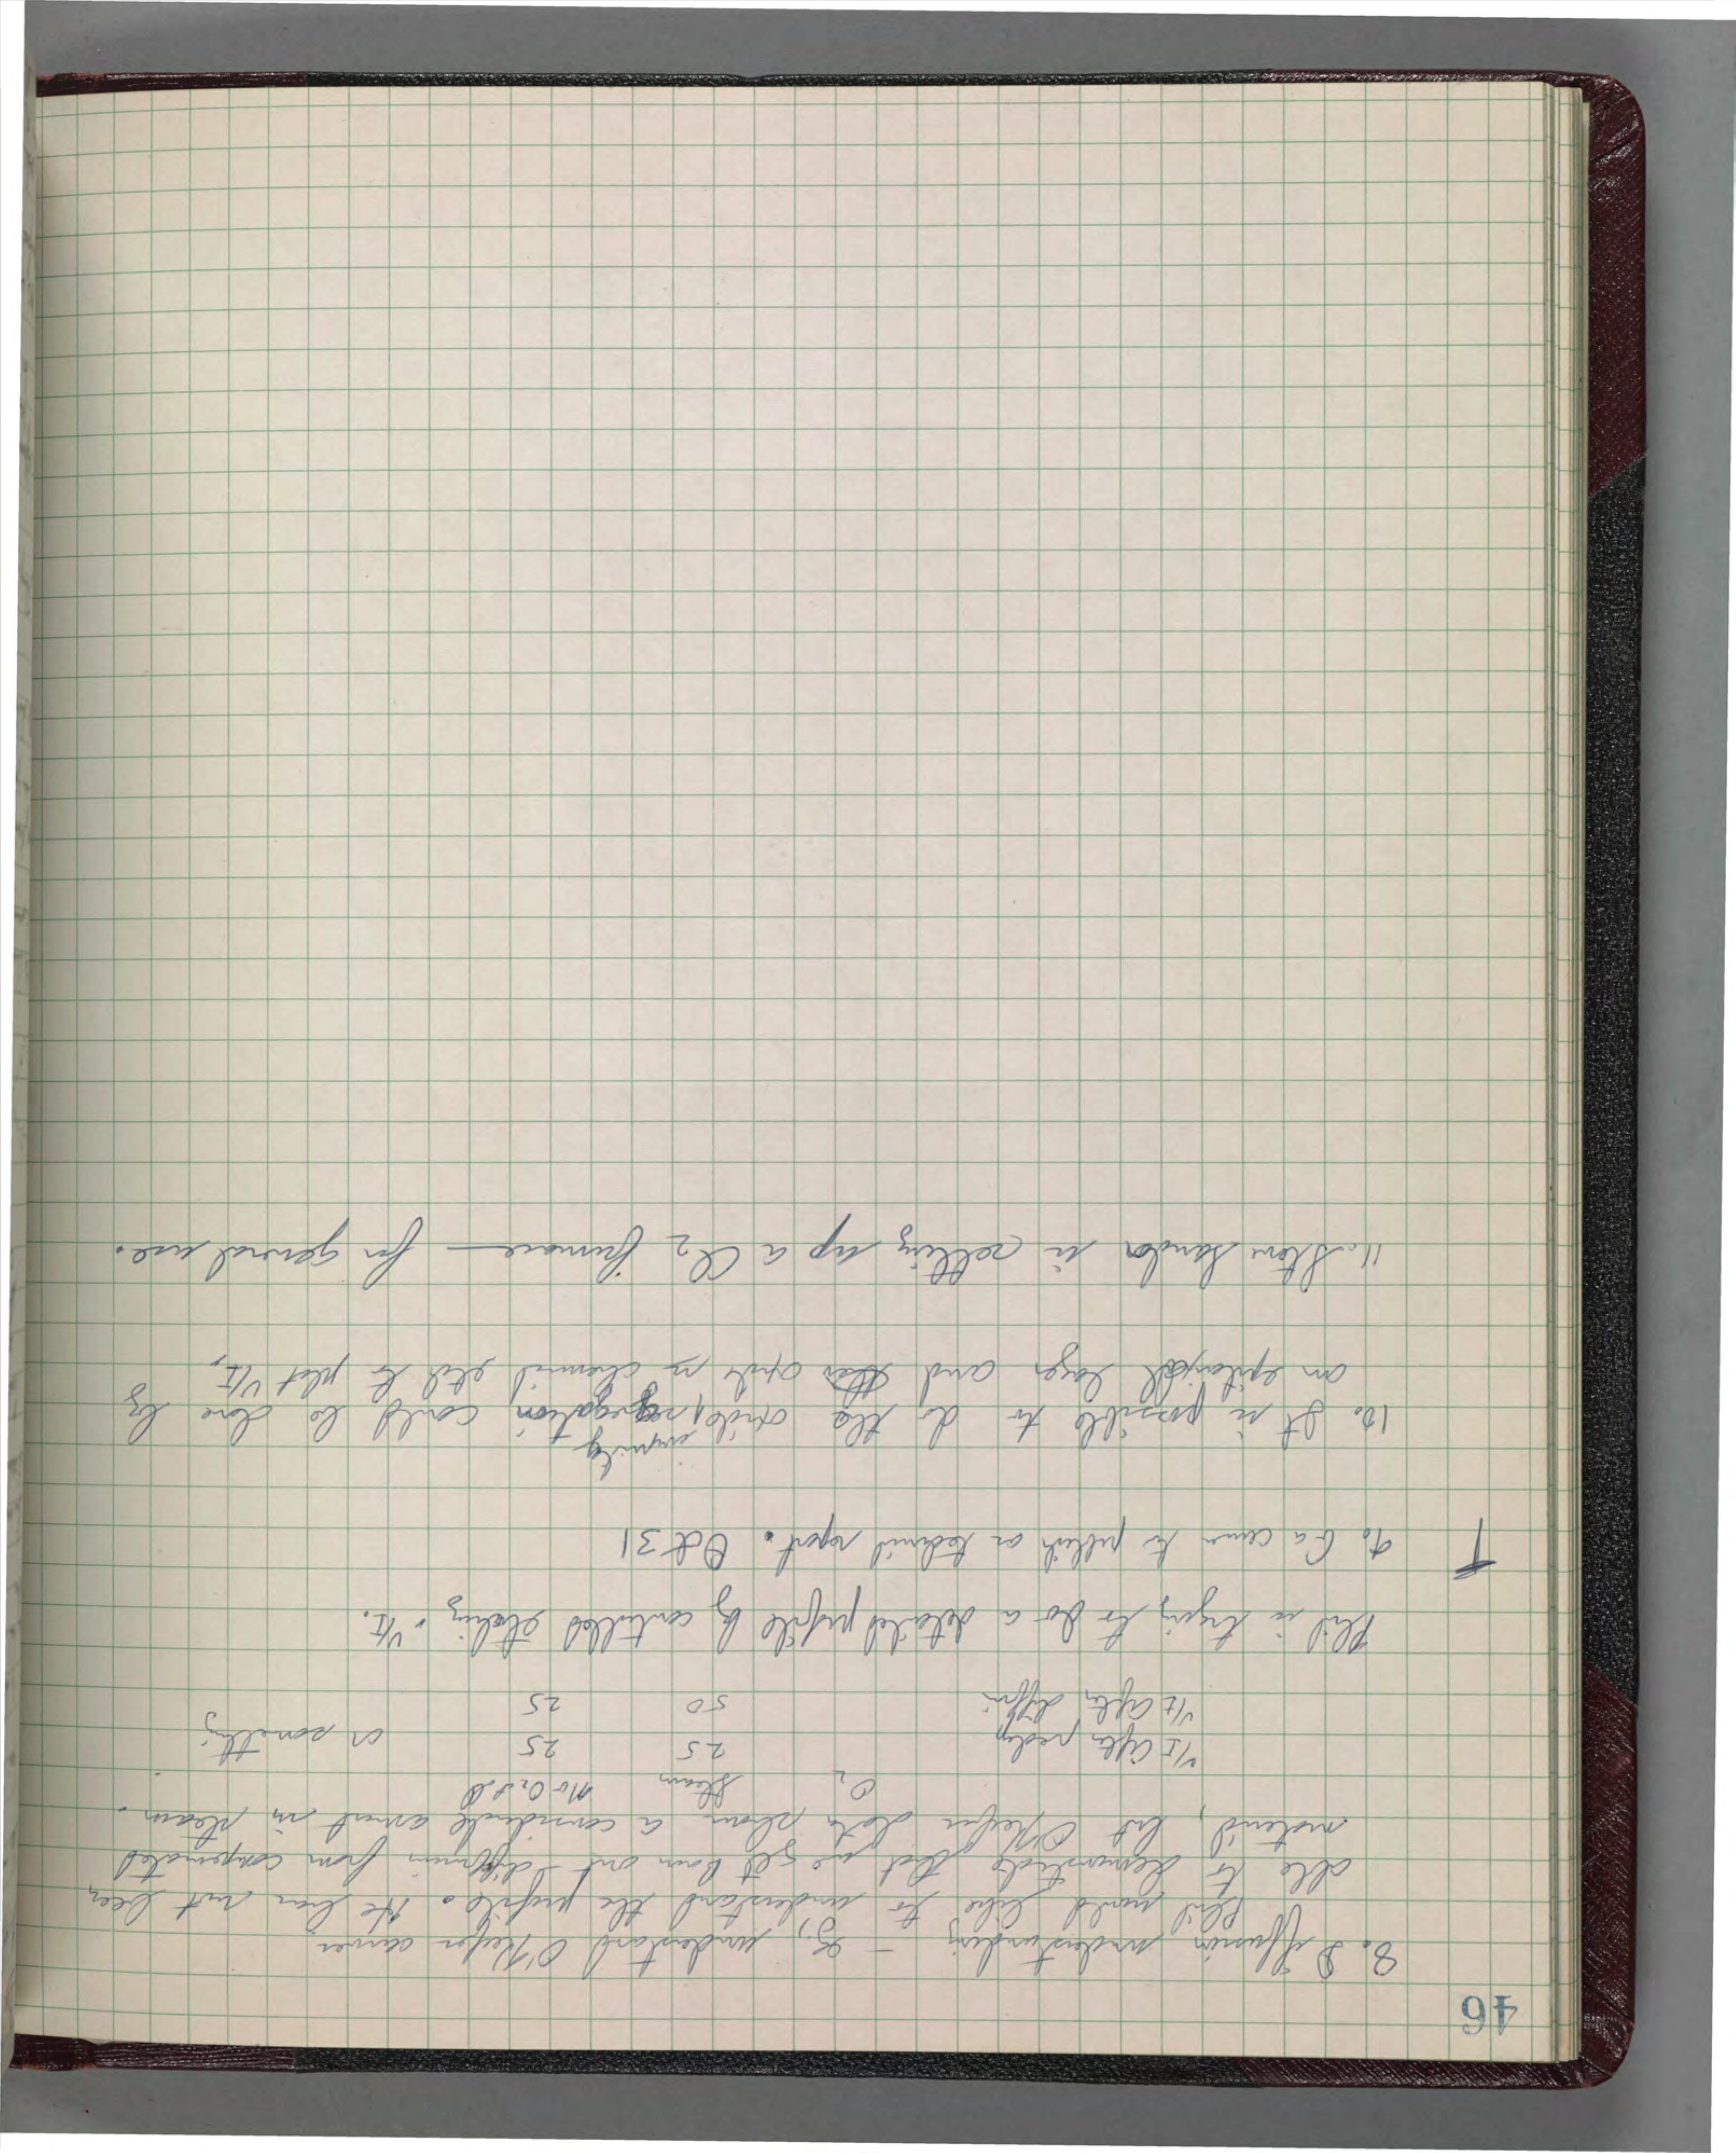 46
8. Diffusion understanding — Eg, understand O'Keefe curves
Phil would like to understand the profile. He has not been
able to demonstrate that we get boron out-diffusion from compensated
material, but O'Keefe data shows a considerable amount in steam.
O2 Steam No O2
V/I after predep 25 25 or something
V/I after diff'n 50 25
Phil is trying to do a detailed profile by controlled etching & V/I.
9. Ga curves to publish as technical report. Oct 31
impurity
10. It is possible to do the oxide segregation could be done by
an epitaxial layer and then oxide vs chemical etch to plot V/I,
11. Steve Sandor is setting up a Cl2 furnace — for general use.